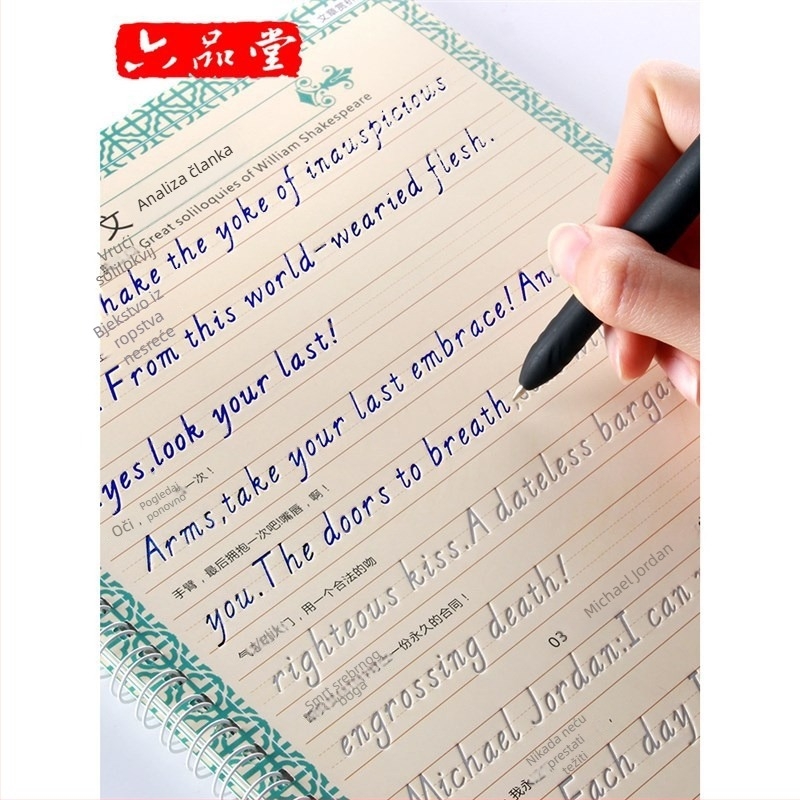 六品堂
文章赏析
Analiza članka
Great soliloquies of William Shakespeare
文
hake the yoke of inauspicious
Vrući
solilokvij
From this world-wearied flesh.
Bjekstvo iz
ropstva
nesreće
yes.look your last!
Oči，Pogledaj ponovno 一次！
Arms,take your last embrace! An
手臂，最后拥抱一次吧!嘴唇，啊！
you.The doors to breath,
气 门，用一个合法的吻
righteous kiss.A dateless barga
Smrt srebrnog boga 一份永久的合同！
engrossing death!
03
Michael Jordan
Michael Jordan:I can
我永
Nikada neću
prestati
težiti
Each day